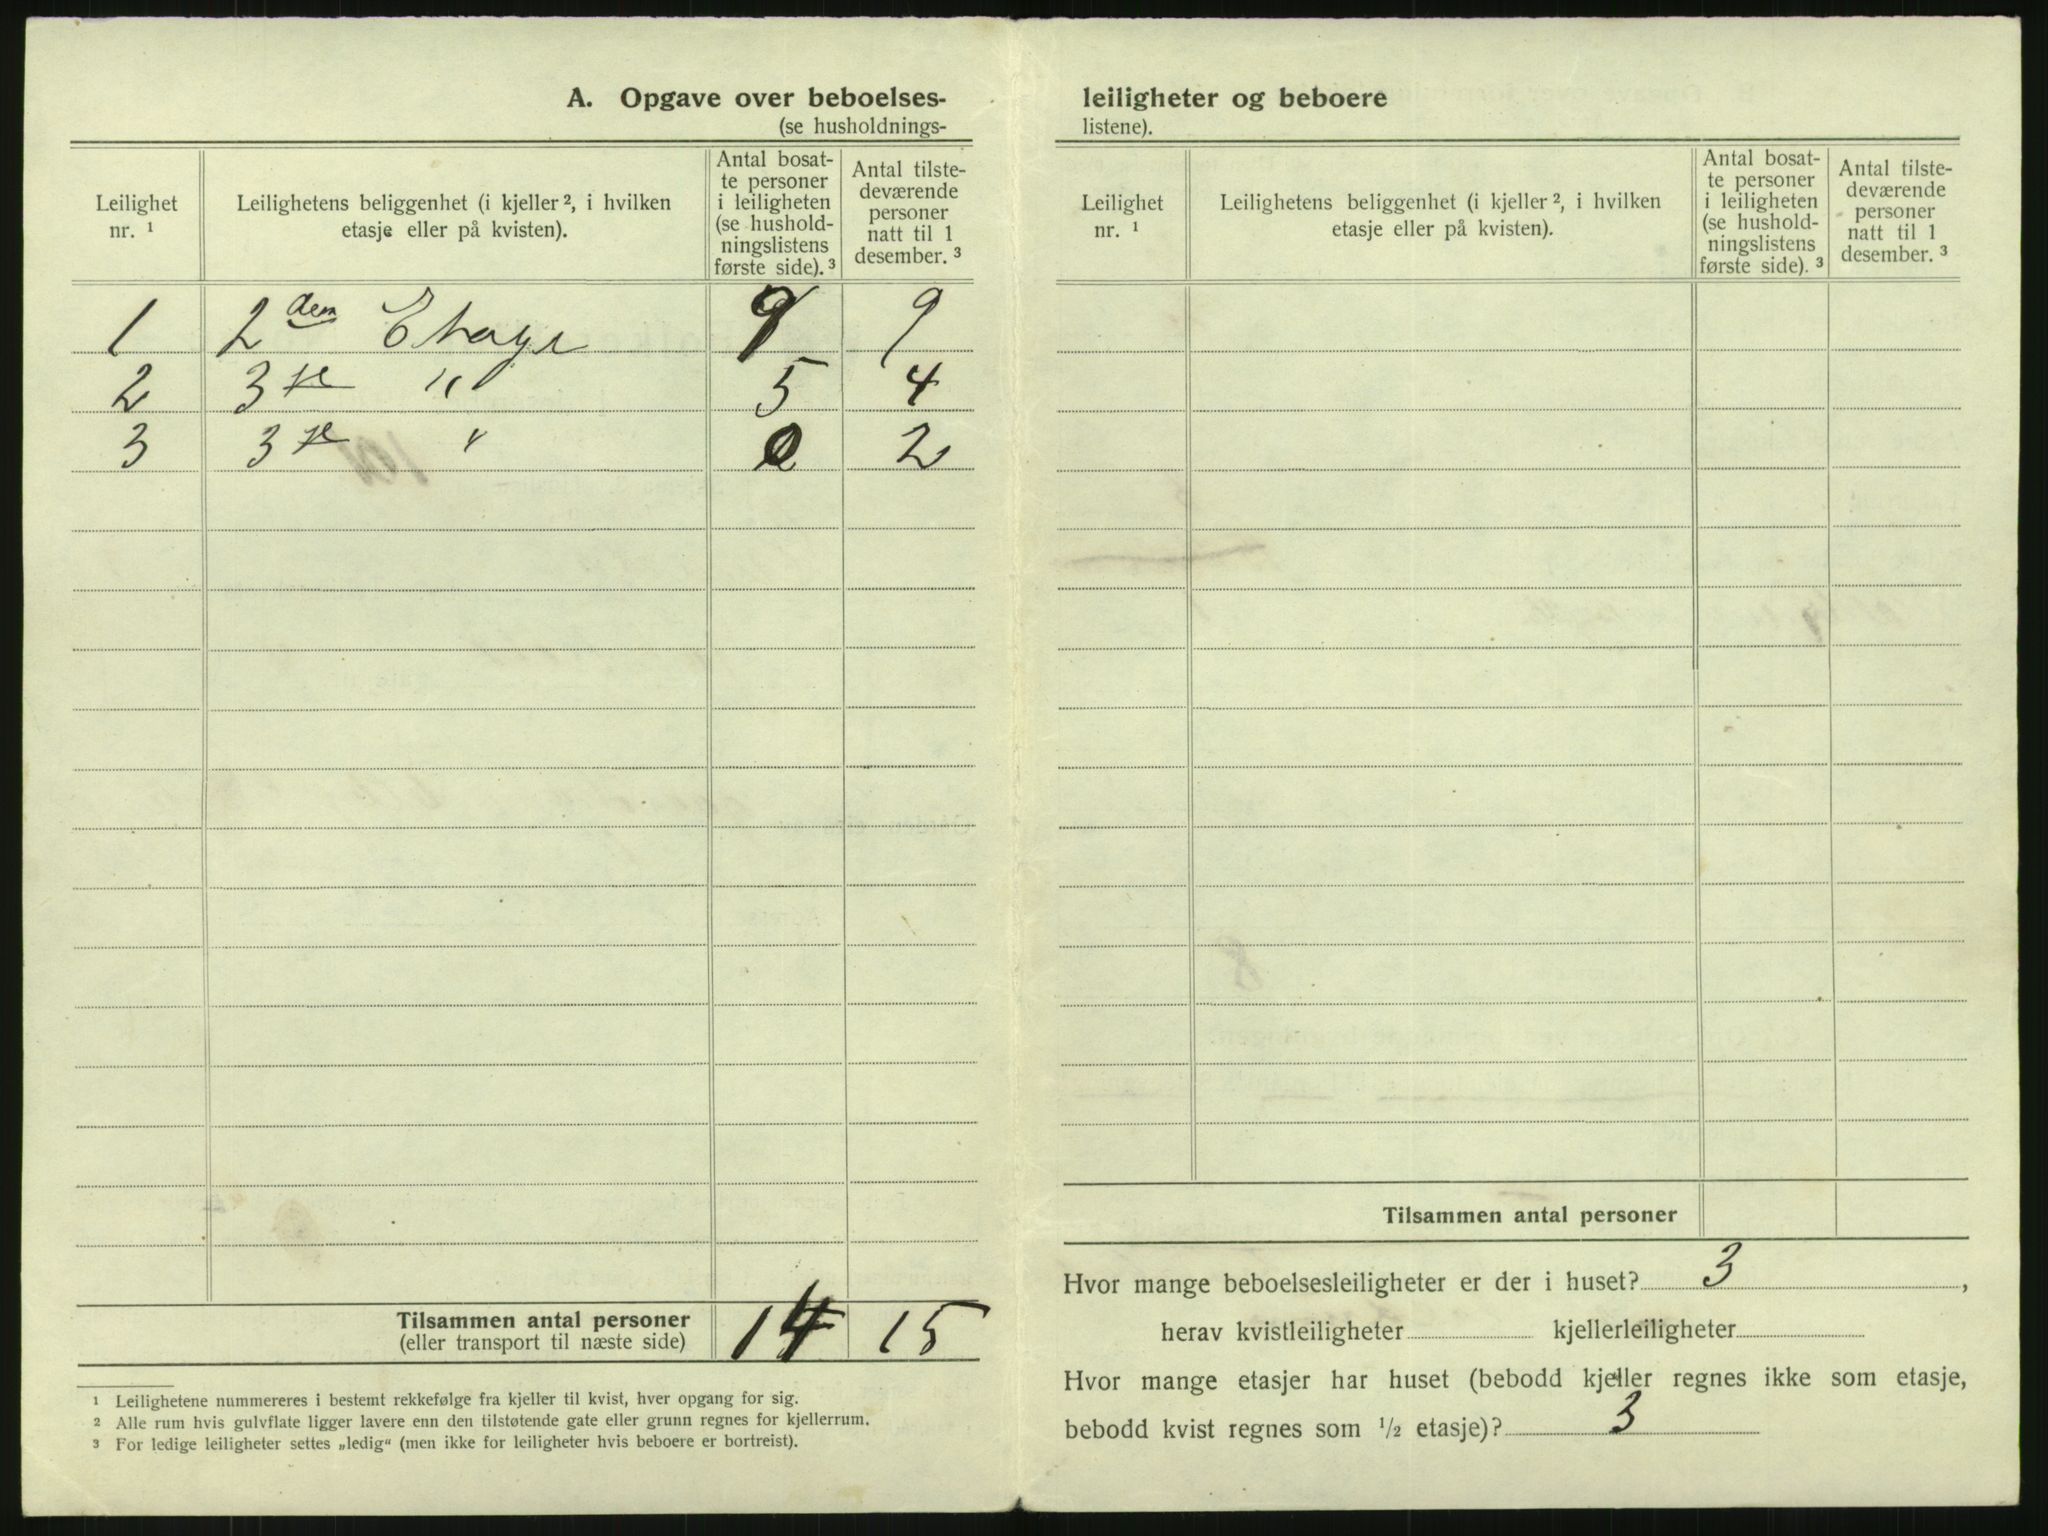 A. Opgave over beboelses-leiligheter og beboere
(se husholdnings-listene).
Leilighet nr. 1
Leilighetens beliggenhet (i kjeller 2, i hvilken etasje eller på kvisten).
Antal bosat-te personer i leiligheten (se hushold-ningslistens første side). 3
Antal tilste-deværende personer natt til 1 desember. 3
1 2 den Etage 9 9
2 3 je " 5 4
3 3 je " 0 2
Tilsammen antal personer 14 15
(eller transport til næste side)
1 Leilighetene nummereres i bestemt rekkefølge fra kjeller til kvist, hver opgang for sig.
2 Alle rum hvis gulvflate ligger lavere enn den tilstøtende gate eller grunn regnes for kjellerrum.
3 For ledige leiligheter settes „ledig“ (men ikke for leiligheter hvis beboere er bortreist).
Leilighet nr. 1
Leilighetens beliggenhet (i kjeller 2, i hvilken etasje eller på kvisten).
Antal bosat-te personer i leiligheten (se hushold-ningslistens første side). 3
Antal tilste-deværende personer natt til 1 desember. 3
Tilsammen antal personer
Hvor mange beboelsesleiligheter er der i huset? 3,
herav kvistleiligheter kjellerleiligheter
Hvor mange etasjer har huset (bebodd kjeller regnes ikke som etasje,
bebodd kvist regnes som 1/2 etasje)? 3